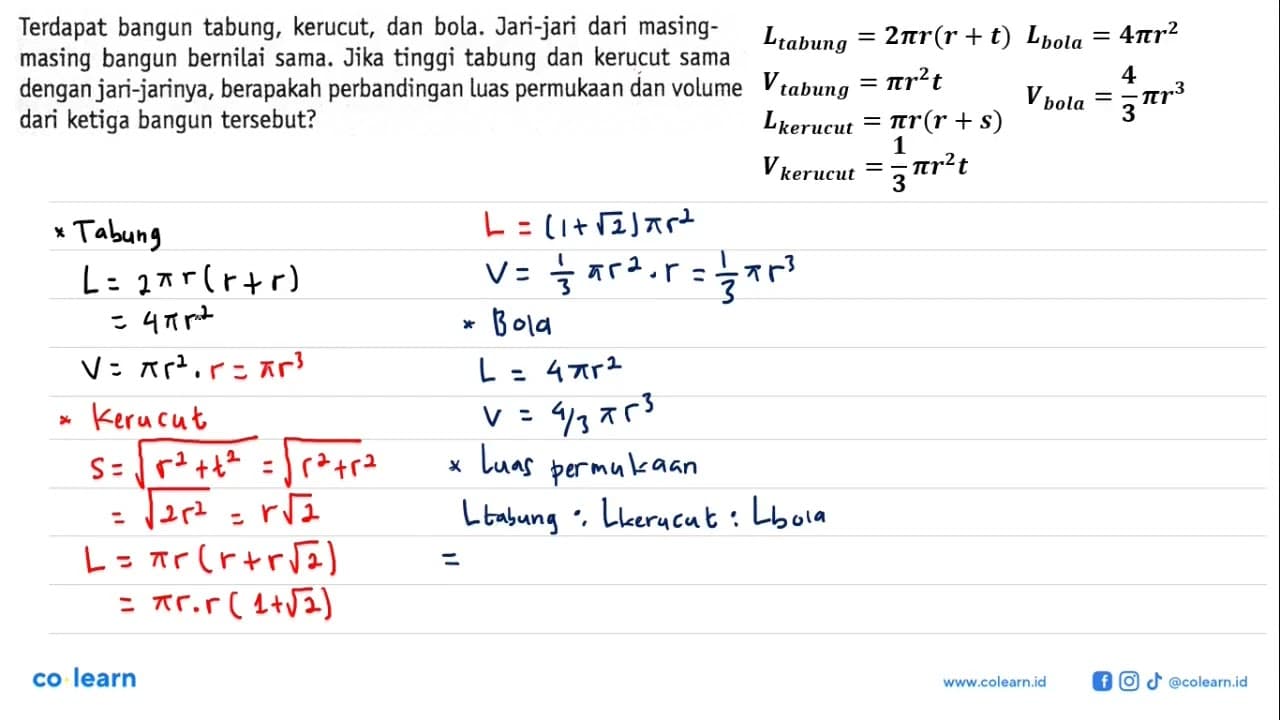 Terdapat bangun tabung, kerucut, dan bola. Jari-jari dari masing-
masing bangun bernilai sama. Jika tinggi tabung dan kerucut sama
dengan jari-jarinya, berapakah perbandingan luas permukaan dan volume
dari ketiga bangun tersebut?
L_tabung = 2πr(r + t) L_bola = 4πr²
V_tabung = πr²t
V_bola = 4/3 πr³
L_kerucut = πr(r + s)
V_kerucut = 1/3 πr²t
* Tabung
L = 2πr(r+r)
= 4πr²
V = πr² . r = πr³
* Kerucut
S = √(r²+t²) = √(r²+r²)
= √(2r²) = r√2
L = πr(r+r√2)
= πr.r(1+√2)
L = (1+√2)πr²
V = 1/3 πr² . r = 1/3 πr³
* Bola
L = 4πr²
V = 4/3 πr³
* Luas permukaan
Ltabung : Lkerucut : Lbola
=
co learn
www.colearn.id
@colearn.id